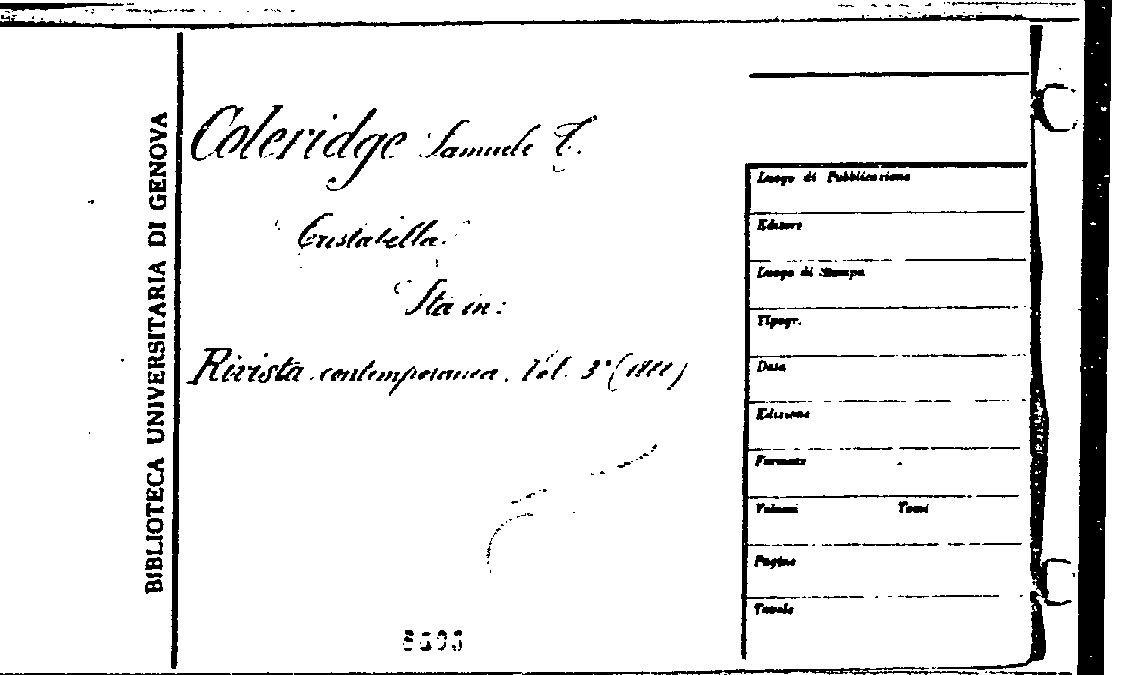 BIBLIOTECA UNIVERSITARIA DI GENOVA
Coleridge Samuele T.
Cristabella
Sta in:
Rivista contemporanea. Vol. 3°
Luogo di Pubblicazione
Editore
Luogo di Stampa
Tipogr.
Data
Edizione
Formato
Volumi Tomi
Pagine
Tavole